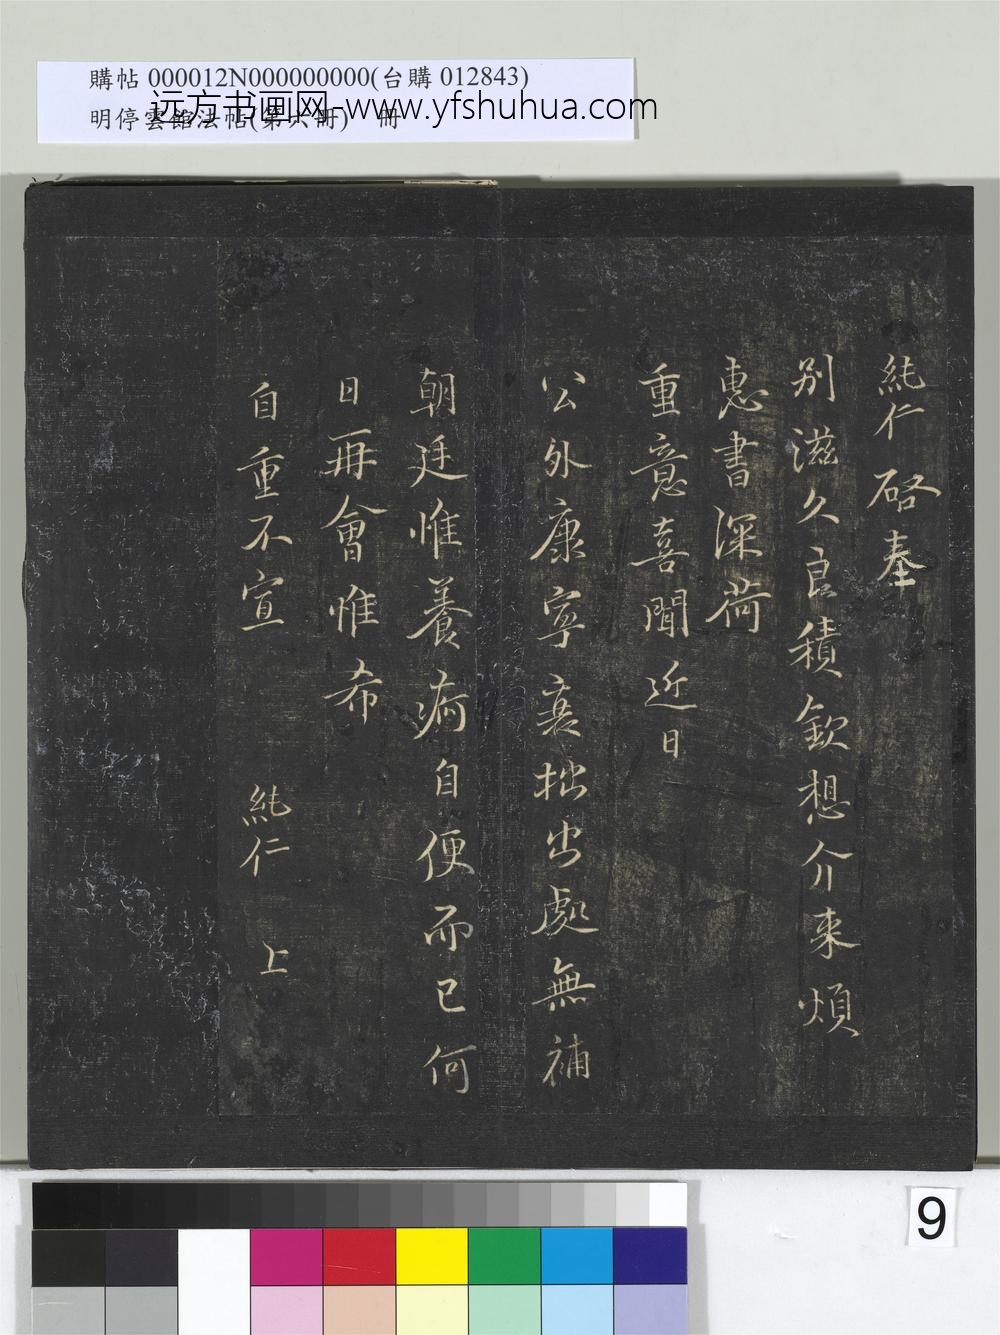 購帖 000012N000000000(台購 012843)
明停雲館法帖(第六冊) 冊
远方书画网-www.yfshuhua.com
純仁啓奉
别滋久良積欽想介来煩
惠書深荷
重意喜聞近日
公外康寧衰拙出處無補
朝廷惟養疴自便而已何
日再會惟希
自重不宣 純仁 上
9